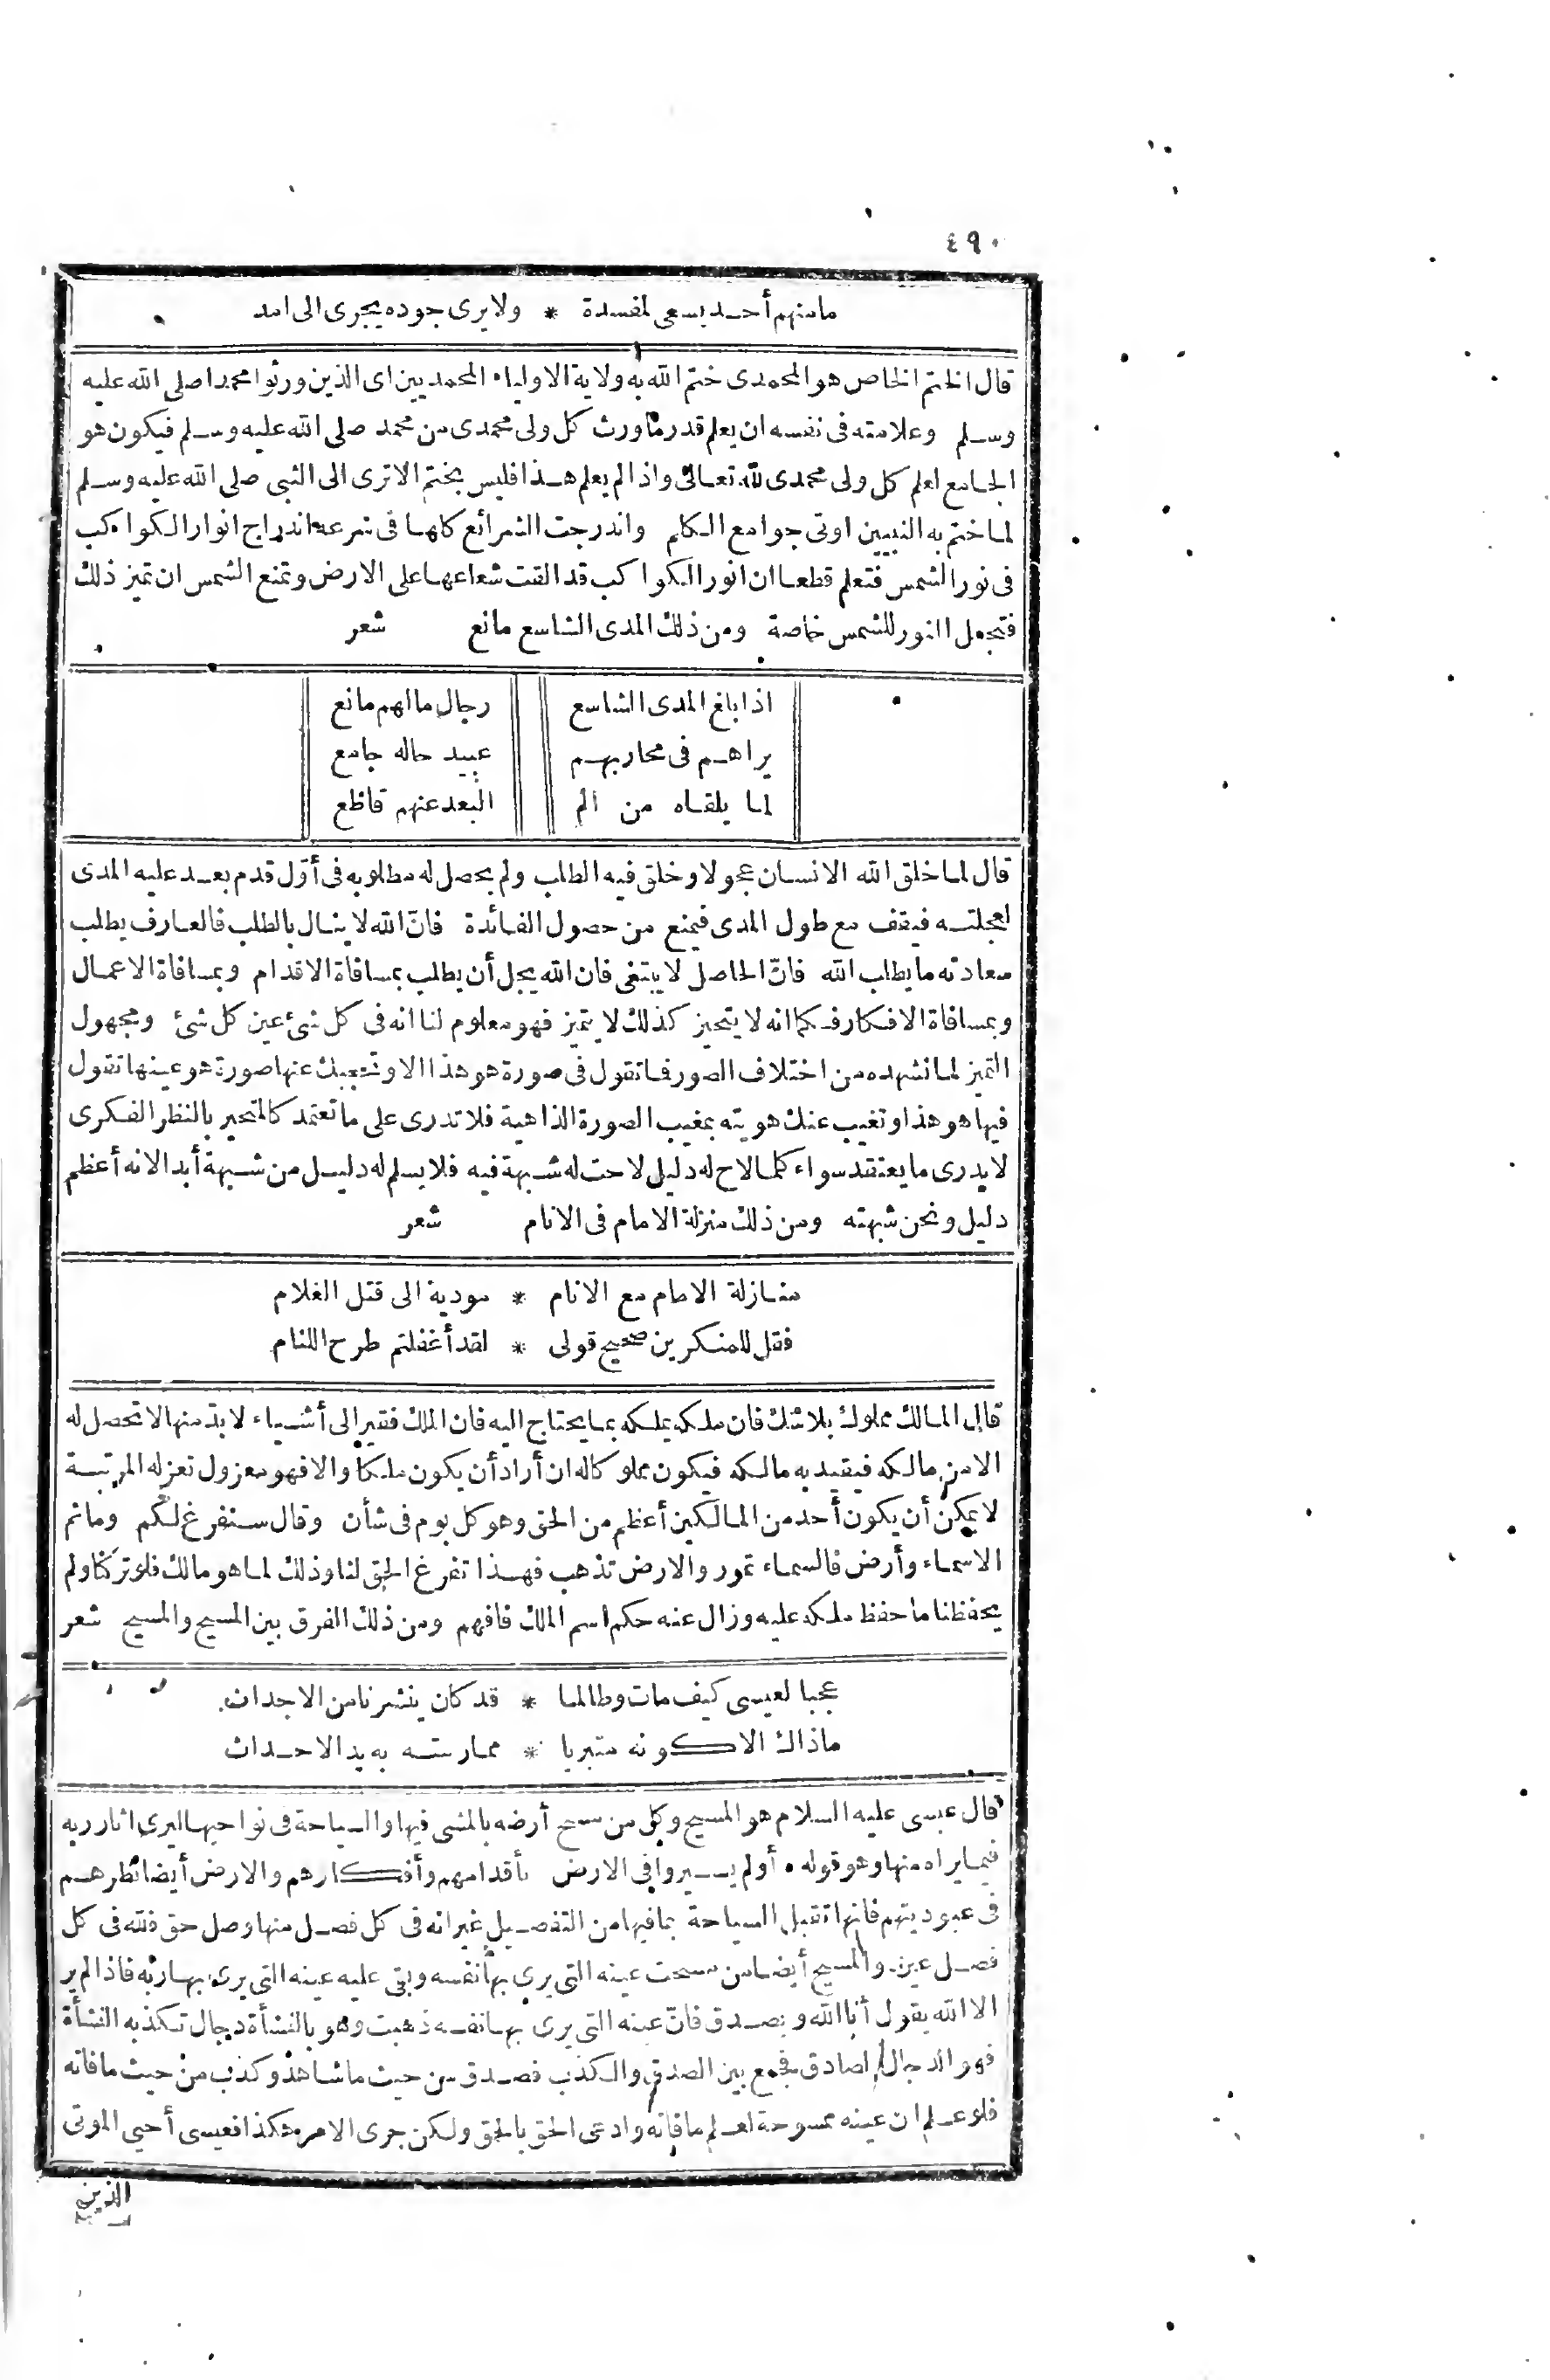 ٤٩٠
مامنهم أحد يسعى لمفسدة * ولا يرى جوده يجرى الى امد
قال الختم الخاص هو المحمدى ختم الله به ولاية الاولياء المحمديين اى الذين ورثوا محمدا صلى الله عليه
وسلم وعلامته فى نفسه ان يعلم قدر ما ورث كل ولى محمدى من محمد صلى الله عليه وسلم فيكون هو
الجامع لعلم كل ولى محمدى لله تعالى واذا لم يعلم هذا فليس بختم الا ترى الى النبى صلى الله عليه وسلم
لما ختم به النبيين اوتى جوامع الكلم واندرجت الشرائع كلها فى شرعه اندراج انوار الكواكب
فى نور الشمس فتعلم قطعا ان انور الكواكب قد القت شعاعها على الارض وتمنع الشمس ان تميز ذلك
فتجعل النور للشمس خاصة ومن ذلك المدى الشاسع مانع شعر
اذا بلغ المدى الشاسع رجال مالهم مانع
يراهم فى محاربهم عبيد حاله جامع
لما يلقاه من الم البعد عنهم قاطع
قال لما خلق الله الانسان عجولا وخلق فيه الطلب ولم يحصل له مطلوبه فى أوّل قدم بعد عليه المدى
لعجلته فيقف مع طول المدى فيمنع من حصول الفائدة فانّ الله لا ينال بالطلب فالعارف يطلب
سعادته ما يطلب الله فانّ الحاصل لا يبتغى فان الله يجل أن يطلب بمسافاة الاقدام وبمسافاة الاعمال
وبمسافاة الافكار فكما انه لا يتحيز كذلك لا يتميز فهو معلوم لنا انه فى كل شئ عين كل شئ ومجهول
التميز لما نشهده من اختلاف الصور فما تقول فى صورة هو هذا الا وتحجبك عنها صورة هو عينها تقول
فيها هو هذا وتغيب عنك هويته بمغيب الصورة الذاهبة فلا تدرى على ما تعتمد كالمتحير بالنظر الفكرى
لا يدرى ما يعتقد سواء كلما لاح له دليل لاحت له شبهة فيه فلا يسلم له دليل من شبهة أبدا لانه أعظم
دليل ونحن شبهته ومن ذلك منزلة الامام فى الانام شعر
منازلة الامام مع الانام * مودية الى قتل الغلام
فقل للمنكرين صحيح قولى * لقد أغفلتم طرح اللثام
قال المالك مملوك بلا شك فان ملكه يملكه بما يحتاج اليه فان الملك فقير الى أشياء لا بدّ منها لا تحصل له
الا من مالكه فيقيد به مالكه فيكون مملوكا له ان أراد أن يكون ملكا والا فهو معزول تعزله المرتبة
لا يمكن أن يكون أحد من المالكين أعظم من الحق وهو كل يوم فى شأن وقال سنفرغ لكم وما ثم
الا سماء وأرض فالسماء تمور والارض تذهب فهذا تفرغ الحق لنا وذلك لما هو مالك فلو تركنا ولم
يحفظنا ما حفظ ملكه عليه وزال عنه حكم اسم الملك فافهم ومن ذلك الفرق بين المسيح والمسيح شعر
عجبا لعيسى كيف مات وطالما * قد كان ينشرنا من الاجداث
ماذاك الا كونه متبريا * ممارسته به يد الاحداث
قال عيسى عليه السلام هو المسيح وكل من مسح أرضه بالمشى فيها والسياحة فى نواحيها ليرى اثار ربه
فيما يراه منها وهو قوله أولم يسيروا فى الارض بأقدامهم وأفكارهم والارض أيضا نظرهم
فى عبوديتهم فانها تقبل السياحة بما فيها من التفصيل غير انه فى كل فصل منها وصل حق فلله فى كل
فصل عين والمسيح أيضا من مسحت عينه التى يرى بها نفسه وبقى عليه عينه التى يرى بها ربه فاذا لم ير
الا الله يقول أنا الله ويصدق فانّ عينه التى يرى بها نفسه ذهبت وهو بالنشأة دجال تكذبه النشأة
فهو الدجال الصادق فجمع بين الصدق والكذب فصدق من حيث ما شاهد وكذب من حيث ما فاته
فلو علم ان عينه ممسوحة لعلم ما فاته وادعى الحق بالحق ولكن جرى الامر هكذا فعيسى أحيى الموتى
الذين